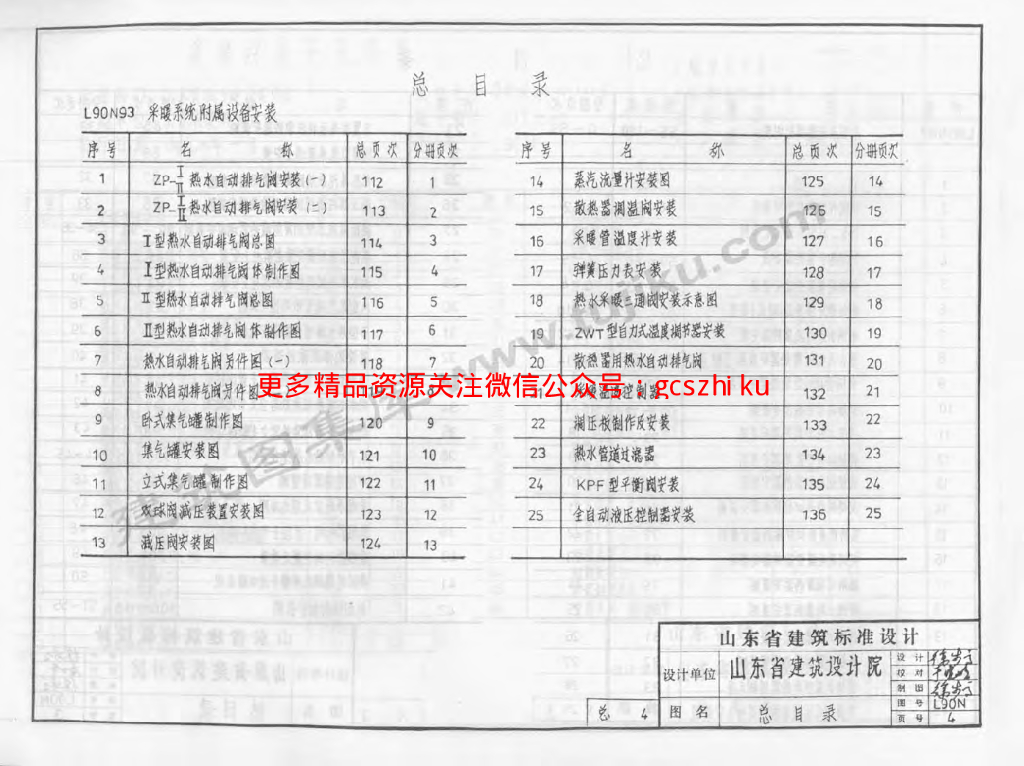 总目录
L90N93 采暖系统附属设备安装
序号 名称 总页次 分册页次
1 ZP-Ⅰ Ⅱ 热水自动排气阀安装(一) 112 1
2 ZP-Ⅰ Ⅱ 热水自动排气阀安装(二) 113 2
3 Ⅰ型热水自动排气阀总图 114 3
4 Ⅰ型热水自动排气阀体制作图 115 4
5 Ⅱ型热水自动排气阀总图 116 5
6 Ⅱ型热水自动排气阀体制作图 117 6
7 热水自动排气阀另件图(一) 118 7
8 热水自动排气阀另件图
9 卧式集气罐制作图 120 9
10 集气罐安装图 121 10
11 立式集气罐制作图 122 11
12 双球阀减压装置安装图 123 12
13 减压阀安装图 124 13
序号 名称 总页次 分册页次
14 蒸汽流量计安装图 125 14
15 散热器调温阀安装 126 15
16 采暖管温度计安装 127 16
17 弹簧压力表安装 128 17
18 热水采暖三通阀安装示意图 129 18
19 ZWT型自力式温度调节器安装 130 19
20 散热器用热水自动排气阀 131 20
132 21
22 调压板制作及安装 133 22
23 热水管道过滤器 134 23
24 KPF型平衡阀安装 135 24
25 全自动液压控制器安装 136 25
更多精品资源关注微信公众号：gcszhiku
建筑图集库 www.tujiku.com
山东省建筑标准设计
设计单位 山东省建筑设计院
设计
校对
制图
图号 L90N
页号 4
总 4 图名 总目录